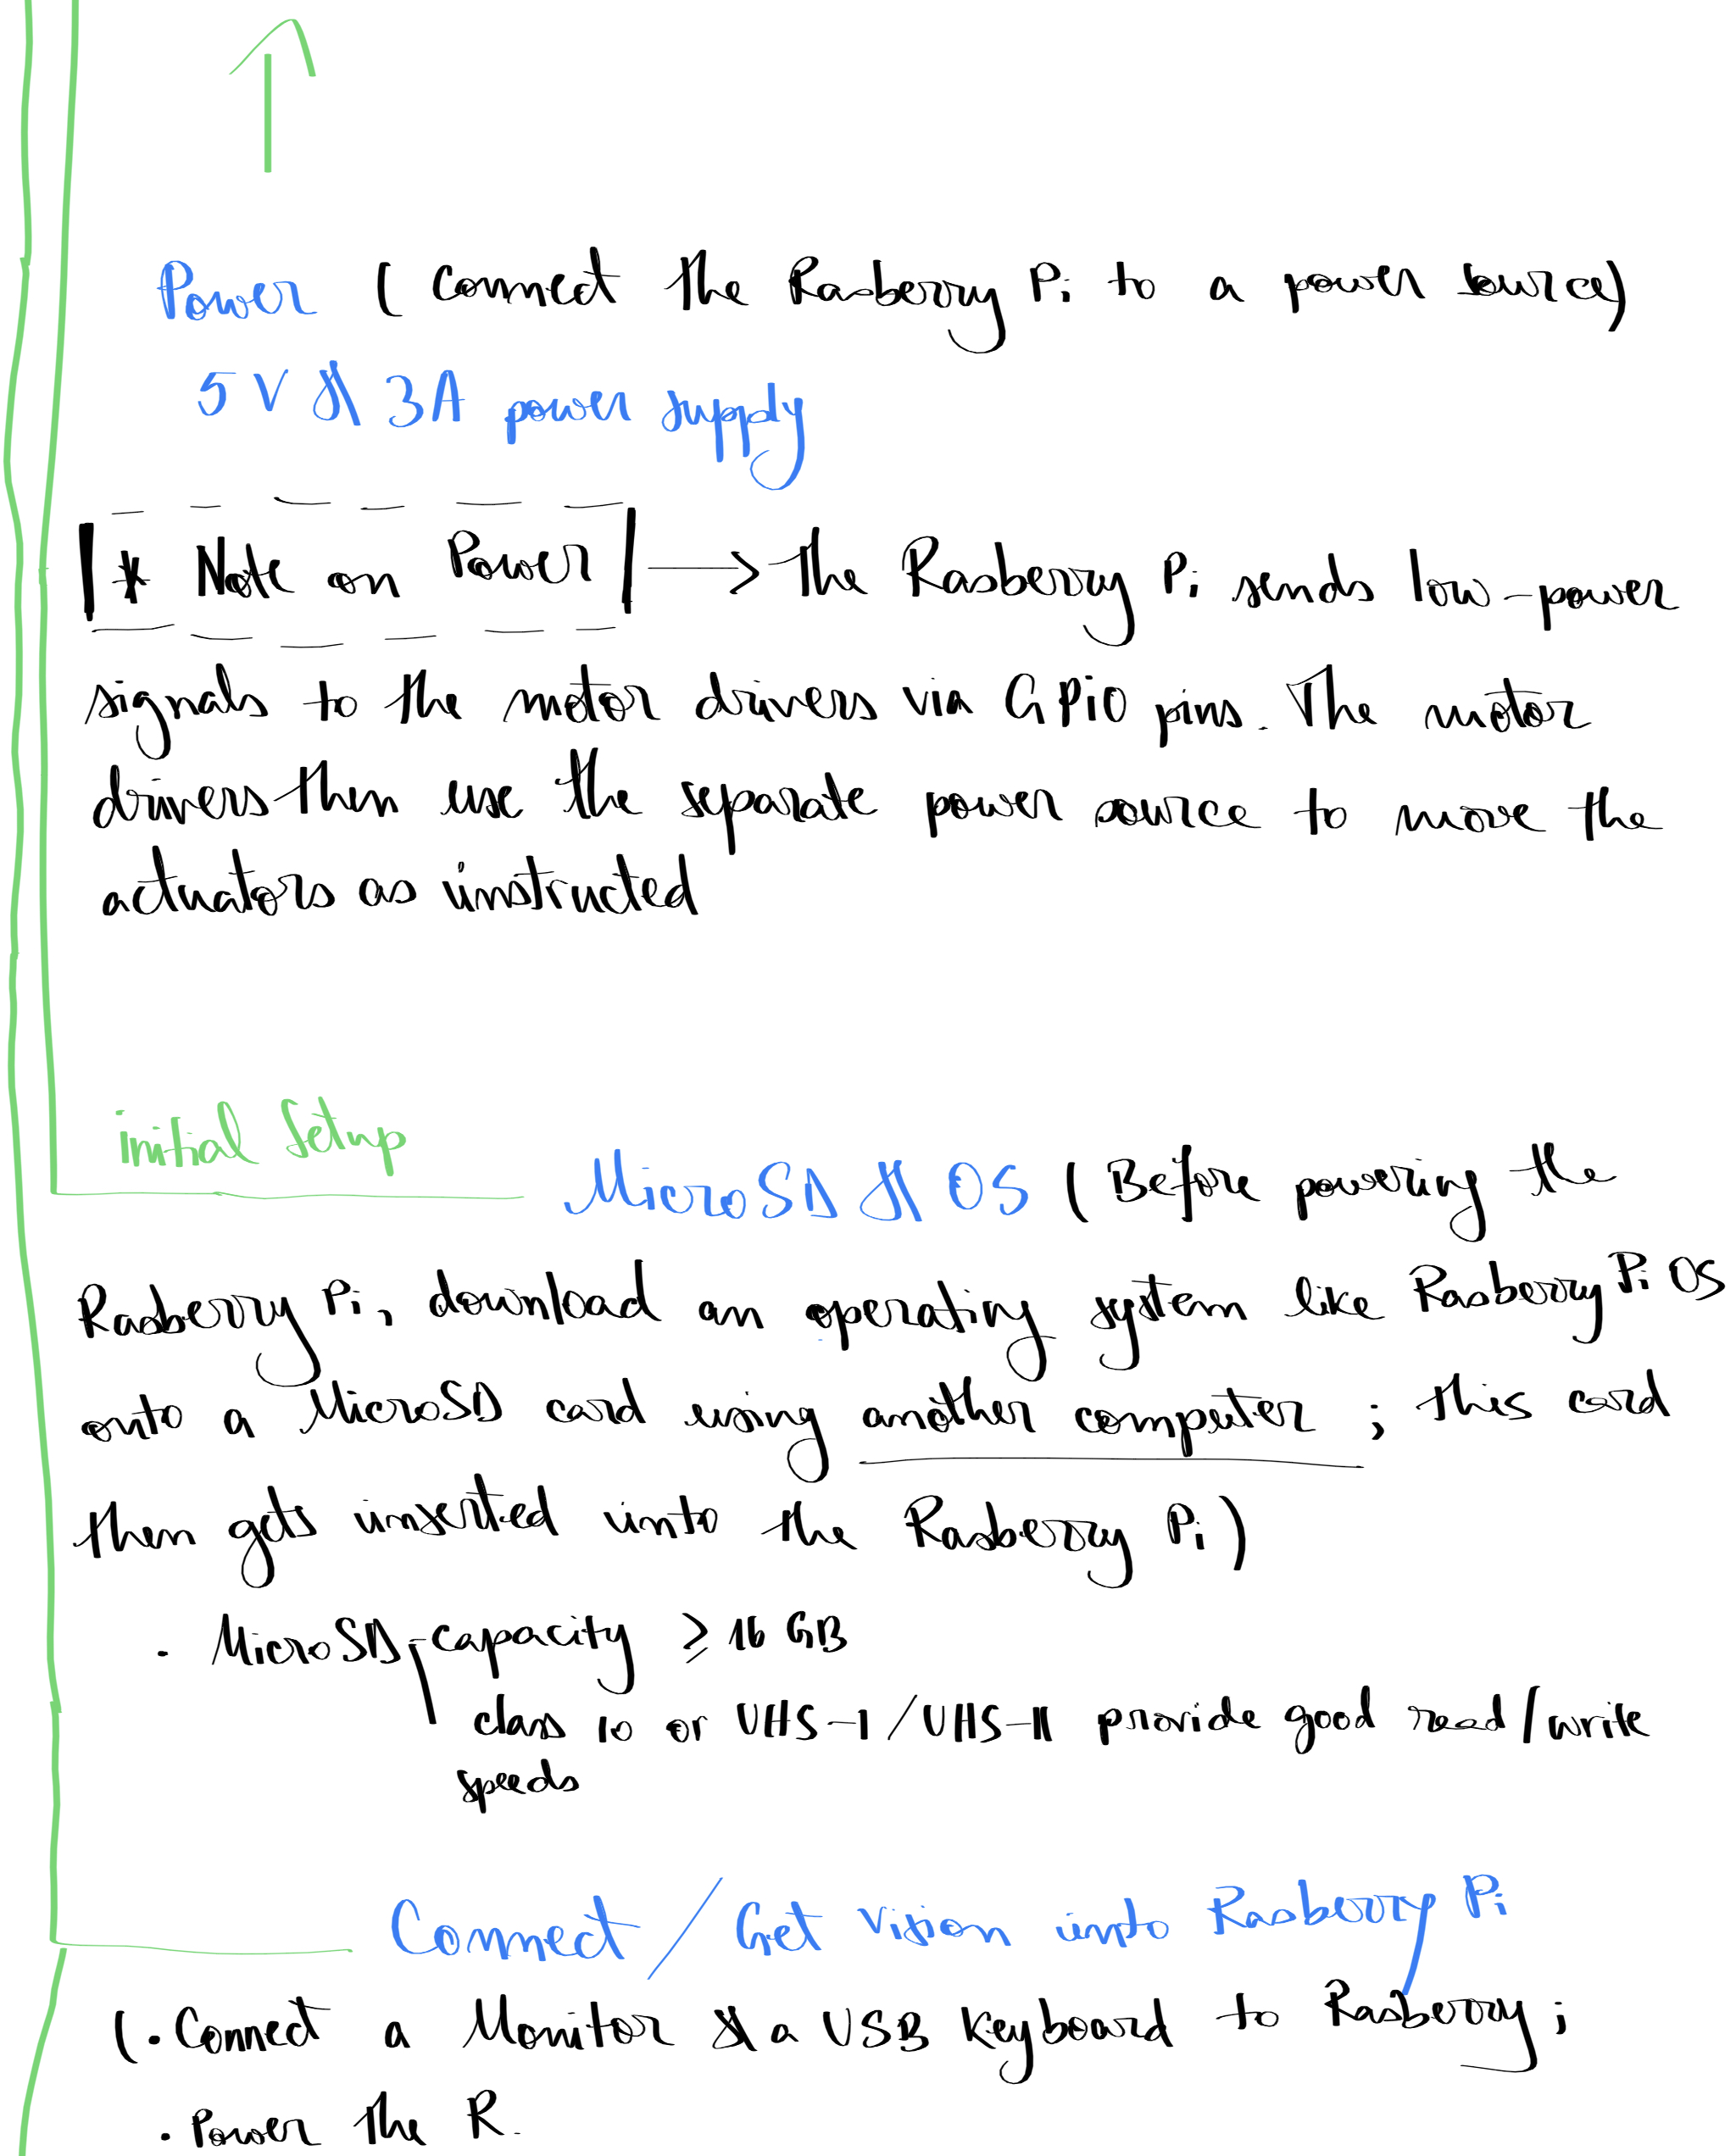 Power ( Connect the Rasberry Pi to a power source)
5V & 3A power supply
* Note on Power → the Rasberry Pi sends low-power
signals to the motor drivers via GPiO pins. The motor
drivers then use the separate power source to move the
actuators as instructed
initial Setup
MicroSD & OS ( Before powering the
Rasberry Pi, download an operating system like Rasberry Pi OS
onto a MicroSD card using another computer ; this card
then gets inserted into the Rasberry Pi )
. MicroSD - capacity ≥ 16 GB
class 10 or UHS-I / UHS-II provide good read/write
speeds
Connect / Get Vision into Rasberry Pi
( . Connect a Monitor & a USB Keyboard to Rasberry ;
. Power the R.